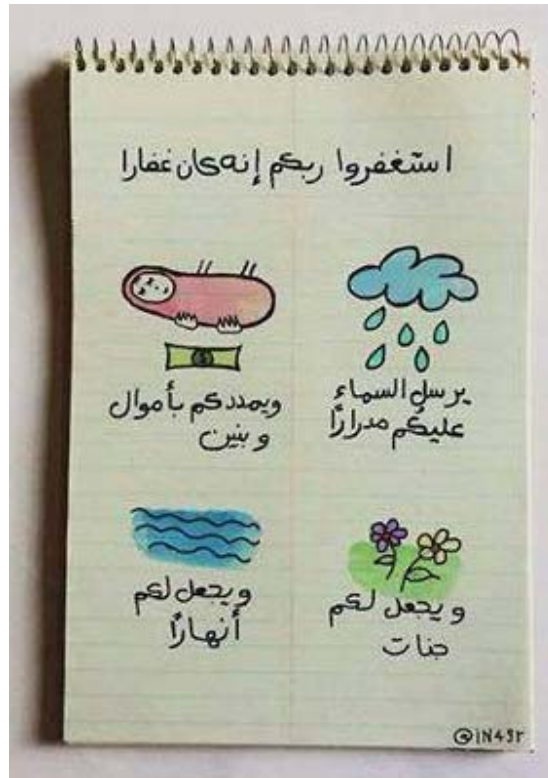 استغفروا ربكم إنه كان غفارا
يرسل السماء
عليكم مدرارًا
ويمددكم بأموال
وبنين
ويجعل لكم
جنات
ويجعل لكم
أنهارًا
@IN4Sr